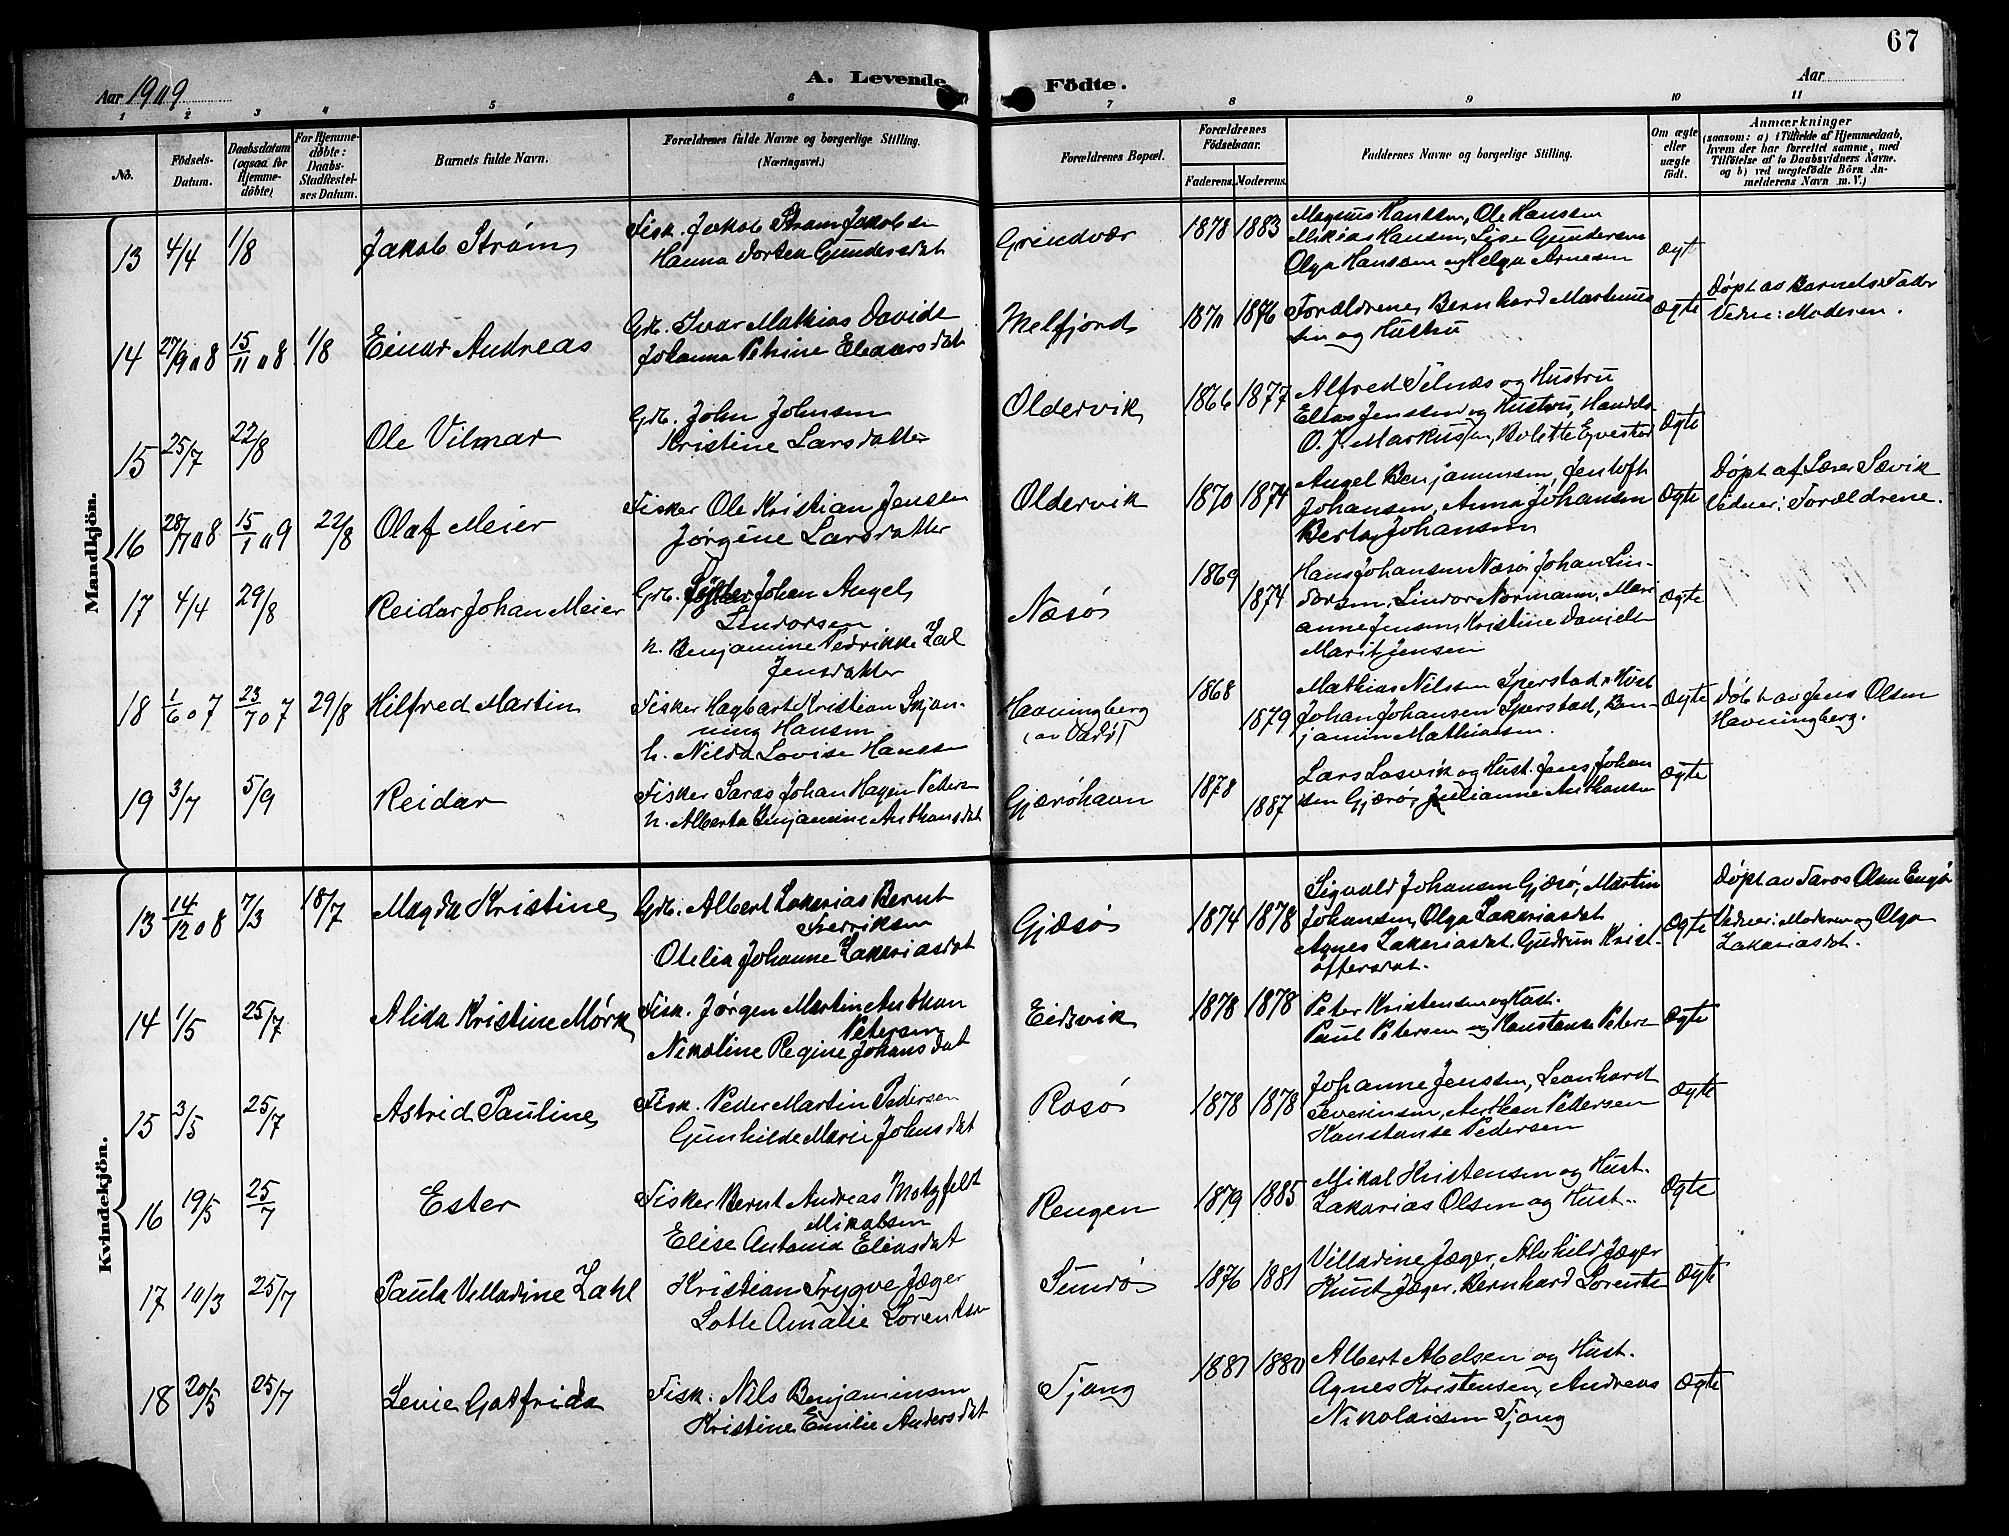 67
Aar 1909
A. Levende Födte.
Aar
1 2 3 4 5 6 7 8 9 10 11
No.
Födsels-Datum.
Daabsdatum (ogsaa för Hjemme-döbte).
For Hjemme-döbte: Daabs-Stadfæstelses Datum.
Barnets fulde Navn.
Forældrenes fulde Navne og borgerlige Stilling.
(Næringsvei.)
Forældrenes Bopæl.
Forældrenes Födselsaar.
Faderens. Moderens.
Faddernes Navne og borgerlige Stilling.
Om ægte eller uægte födt.
Anmærkninger
(saasom: a) i Tilfælde af Hjemmedaab,
hvem der har forrettet samme, med
Tilföielse af to Daabsvidners Navne.
og b) ved uægtefödte Börn An-
melderens Navn m. V.)
Mandkjön.
13 4/4 1/8 Jakob Strøm
Fisk. Jakob Strøm Jakobsen
Hanna Dortea Gundersdat
Grindvær 1878 1883
Magnus Hansen, Ole Hansen
Mikias Hansen, Lise Gundersen
Olga Hansen og Helga Arnesen
Ægt
14 27/9 08 15/11 08 1/8 Einar Andreas
Grb. Ivar Mathias Davids
Johanna Petrine Eleasersdat
Melfjord 1870 1876
Forældrene, Bernhard Martinus
sen og Hustru
Ægte
Døpt av Barnets Fader
Vidne: Moderen.
15 25/7 22/8 Ole Vilmar
Grb. John Johnsen
Kristine Larsdatter
Oldervik 1866 1877
Alfred Selnæs og Hustru
Elias Jenssen og Hustru, Handels-
O. J. Markussen, Bolette
Ægte
16 28/7 08 15/1 09 22/8 Olaf Meier
Fisker Ole Kristian Jensen
Jørgine Larsdatter
Oldervik 1870 1874
Angel Benjaminsen, Jentoft
Johansen, Anna Johansen
Berta Johansen
Ægte
Døpt af Lærer Sævik
Vidner: Forældrene.
17 4/4 29/8 Reidar Johan Meier
Grb. Johan Angel
Lindorsen
h. Benjamine Fedrikke Zal
Jensdatter
Næsø 1869 1874
Hans Johansen Næsø, Johan Lin-
dorsen, Lindor Normann, Mari-
anne Jensen, Kristine Daniels
Marit Jensen
Ægte
18 1/6 07 23/7 07 29/8 Hilfred Martin
Fisker Hagbart Kristian Skjan-
ning Hansen
h. Nilda Lovise Hansen
Havningberg
(av Vadsø) 1868 1879
Mathias Nilsen Sperstad, Hust
Johan Johansen Sperstad, Ben-
jamin Mathiasen.
Ægte
Døbt av Jens Olsen
Havningberg.
19 3/7 5/9 Reidar
Fisker Saras Johan Hagen Peters
h. Alberta Benjamine Anthonsdat
Gjærøhavn 1878 1887
Lars Losvik og Hust. Jens Johan
sen Gjærø, Julianne Anthonsen
Ægte
Kvindekjön.
13 14/12 08 7/3 18/7 Magda Kristine
Grb. Albert Zakarias Bernt
Fredriksen
Otelia Johanne Zakariasdat
Gjæsø 1874 1878
Sigvald Johansen Gjæsø, Martin
Johansen, Olga Zakariasdat
Agnes Zakariasdat. Gudrun Krist-
offersdat.
Ægte
Døpt av Saros Olsen Engø
Vidner: Moderen og Olga
Zakariasdat.
14 1/5 25/7 Alida Kristine Mørk
Fisk. Jørgen Martin Anthon
Petersen
Nikoline Regine Johansdat
Eidsvik 1878 1878
Peter Kristensen og Hust.
Paul Petersen og Konstanse Peters
Ægte
15 3/5 25/7 Astrid Pauline
Fisk. Peder Martin Pedersen
Gunhilde Marie Johnsdat
Rosø 1878 1878
Johanne Jenssen, Leonhard
Severinsen, Anthon Pedersen
Konstanse Pedersen
Ægte
16 19/5 25/7 Ester
Fisker Bernt Andreas Motzfelt
Mikalsen
Elise Antonia Eliasdat
Rengen 1879 1885
Mikal Kristensen og Hust.
Zakarias Olsen og Hust.
Ægte
17 10/3 25/7 Paula Villadine Zahl
Kristian Trygve Jæger
Lotte Amalie Lorentsen
Sundø 1876 1881
Villadine Jæger, Alvhild Jæger
Knut Jæger, Bernhard Lorents
Ægte
18 20/5 25/7 Lenie Gotfrida
Fisk. Nils Benjaminsen
Kristine Emilie Andersdat
Tjong 1881 1880
Albert Abelsen og Hust.
Agnes Kristensen, Andreas
Nikolaisen Tjong
Ægte